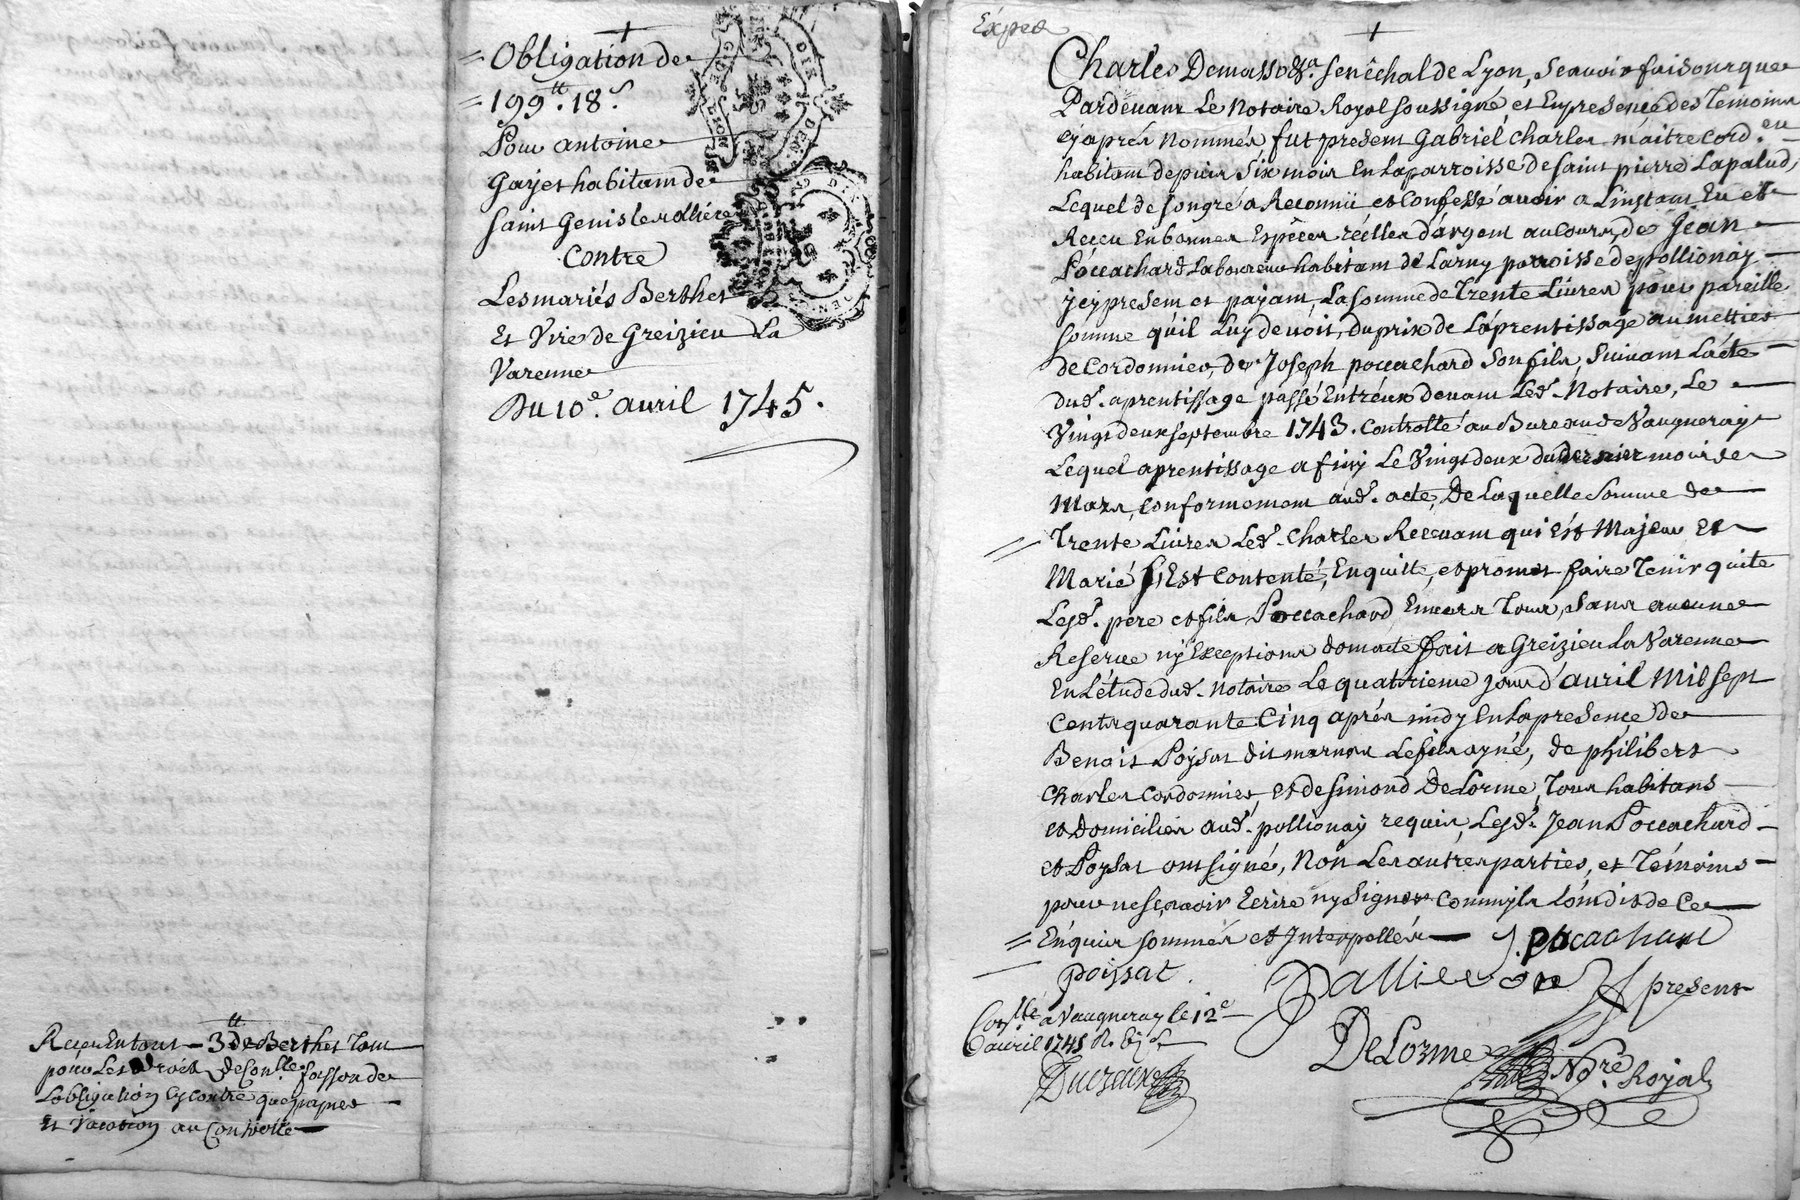 Obligation de
199 ₶. 18 s.
Pour antoine
Gayet habitant de
Saint Genis leralliere
Contre
Les mariés Berthet
Et Vire de Greizieu La
Varenne
Du 10e. avril 1745.
Receu En tout 3 ₶ de Berthet tant
pour Les droits de Con.lle fasson de
Lobligation cy contre que papier
Et Vacation au Controlle
Exped
Charles Demasso &a. Senêchal de Lyon, Scavoir faisons que
Pardevant Le Notaire Royal soussigné et En presence des Temoins
cy après Nommés fut present Gabriel Charles maitre Cord.eu
habitant depuis Six mois En La parroisse de Saint pierre Lapalud,
Lequel de Son gré a Reconnü et Confessé avoir a L'instant Eu et
Receu En bonnes Espèces réelles d'argent au Cours, de Jean
Poccachard Laboureur habitant de Larny parroisse de pollionay
jcy present et payant, La somme de Trente Livres pour pareille
Somme qu'il Luy devoit, du prix de L'aprentissage au mettier
de Cordonnier, de Joseph poccachard Son fils, Suivant L'acte
dud. aprentissage passé Entr'eux devant Led. Notaire, Le
Vingt deux septembre 1743. Controllé au Bureau de Vaugneray
Lequel aprentissage a finy Le Vingt deux du dernier mois de
Mars, Conformement aud. acte, De Laquelle Somme de
Trente Livres Led. Charles Recevant qui Est Majeur Et
Marié S'Est Contenté, En quitte, et promet faire Tenir quite
Lesd. père et fils Poccachard Envers Tous, Sans aucune
Reserve ny Exceptions dont acte fait a Greizieu La Varenne
En L'étude dud. Notaire Le quatrieme jour d'avril Mil Sept
Cents quarante Cinq après midy En La presence de
Benoit Poysat dit marnon Le fils ayné, de philibert
Charles Cordonnier, et de Simond DeLorme, Tous habitans
et Domiciliés aud. pollionay requis, Lesd. Jean Poccachard
et Poysat ont signé, Non Les autres parties, et Témoins
pour ne Sçavoir Ecrire ny Signer Comm'ils L'ont dit de Ce
Enquis Sommés et Interpellés J. pocachard
poissat.
present
Con.llé a Vaugneray le 12e
d'avril 1745
DeLorme No.re Royal